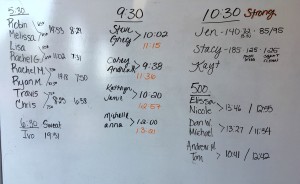 5:30
Robin
Melissa > 19:33 8:29
Lisa
Rachel G. > 11:02 7:31
Rachel M.
Ryan M. > 9:18 7:50
Travis
Chris > 8:25 6:58
6:30 Sweat
Ivo 19:31
9:30
Steve
Greg > 10:02
11:15
Corey
Andrea K > 9:38
11:36
Kathryn
Jamie > 10:20
12:57
Michelle
anna > 12:00
13:21
10:30 Strong
Jen - 140 85/95
Stacy - 185 125 125
Kayt
500
Elissa
Nicole > 13:46 / 12:55
Daniel
Michael > 13:27 / 11:54
Andrew M
Tom > 10:41 / 12:42